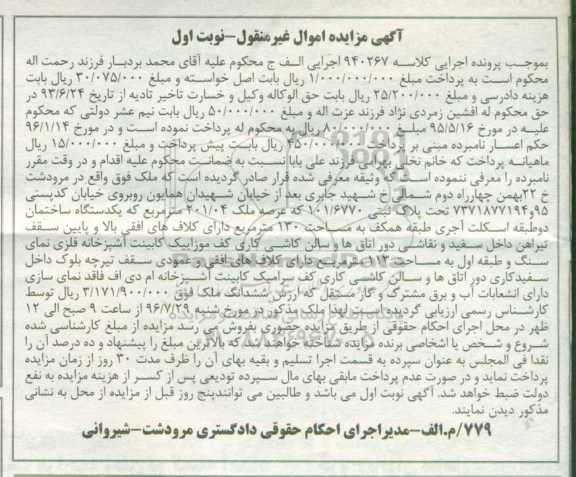 آگهی مزایده اموال غیرمنقول-نوبت اول
بموجب پرونده اجرایی کلاسه ۹۴۰۲۶۷ اجرایی الف ج محکوم علیه آقای محمد بردبار فرزند رحمت اله
محکوم است به پرداخت مبلغ ۱/۰۰۰/۰۰۰/۰۰۰ ریال بابت اصل خواسته و مبلغ ۳۰/۰۷۵/۰۰۰ ریال بابت
هزینه دادرسی و مبلغ ۲۵/۲۰۰/۰۰۰ ریال بابت حق الوکاله وکیل و خسارت تاخیر تادیه از تاریخ ۹۳/۶/۲۴ در
حق محکوم له افشین زمردی نژاد فرزند عزت اله و مبلغ ۵۰/۰۰۰/۰۰۰ ریال بابت نیم عشر دولتی که محکوم
علیه در مورخ ۹۵/۵/۱۶ مبلغ ۸۰۰/۰۰۰/۰۰۰ ریال به محکوم له پرداخت نموده است و در مورخ ۹۶/۱/۱۴
حکم اعسار نامبرده مبنی بر پرداخت ۴۵۰/۰۰۰/۰۰۰ ریال بابت پیش پرداخت و مبلغ ۱۵/۰۰۰/۰۰۰ ریال
ماهیانه پرداخت که خانم نخلی بهرامی فرزند علی بابا نسبت به ضمانت محکوم علیه اقدام و در وقت مقرر
نامبرده را معرفی ننموده است که وثیقه معرفی شده قرار صادر گردیده است که ملک فوق واقع در مرودشت
خ ۲۲بهمن چهارراه دوم شمالی خ شهید جابری بعد از خیابان شهیدان همایون روبروی خیابان کدپستی
۷۳۷۱۸۷۷۱۹۴و۹۵ تحت پلاک ثبتی ۱۰۱/۶۷۷۰ که عرصه ملک ۲۰۱/۰۴ مترمربع که یکدستگاه ساختمان
دوطبقه اسکلت آجری طبقه همکف به مساحت ۱۳۰ مترمربع دارای کلاف های افقی بالا و پایین سقف
تیراهن داخل سفید و نقاشی دور اتاق ها و سالن کاشی کاری کف موزاییک کابینت آشپزخانه فلزی نمای
سنگ و طبقه اول به مساحت ۱۱۳ مترمربع دارای کلاف های افقی و عمودی سقف تیرچه بلوک داخل
سفیدکاری دور اتاق ها و سالن کاشی کاری کف سرامیک کابینت آشپزخانه ام دی اف فاقد نمای سازی
دارای انشعابات آب و برق مشترک و گاز مستقل که ارزش ششدانگ ملک فوق ۳/۱۷۱/۹۰۰/۰۰۰ ریال توسط
کارشناس رسمی ارزیابی گردیده است لهذا ملک مذکور در مورخ شنبه ۹۶/۷/۲۹ از ساعت ۹ صبح الی ۱۲
ظهر در محل اجرای احکام حقوقی از طریق مزایده حضوری بفروش می رسد مزایده از مبلغ کارشناسی شده
شروع و شخص یا اشخاصی برنده مزایده شناخته خواهند شد که بالاترین مبلغ را پیشنهاد و ده درصد آن را
نقدا فی المجلس به عنوان سپرده به قسمت اجرا تسلیم و بقیه بهای آن را ظرف مدت ۳۰ روز از زمان مزایده
پرداخت نماید و در صورت عدم پرداخت مابقی بهای مال سپرده تودیعی پس از کسر از هزینه مزایده به نفع
دولت ضبط خواهد شد. آگهی نوبت اول می باشد و طالبین می توانندپنج روز قبل از مزایده از محل به نشانی
مذکور دیدن نمایند.
۷۷۹/م.الف-مدیراجرای احکام حقوقی دادگستری مرودشت-شیروانی